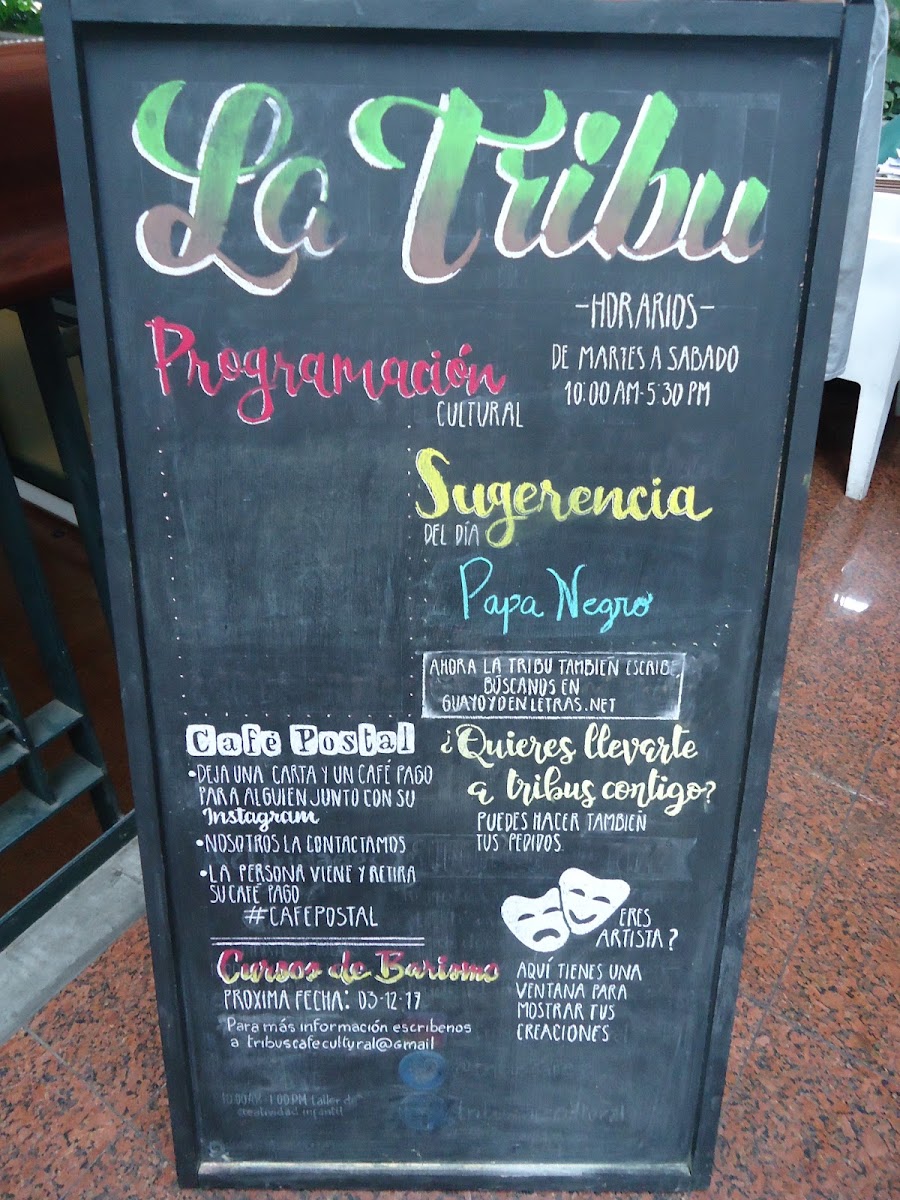 La Tribu
-HORARIOS-
DE MARTES A SABADO
10:00 AM-5:30 PM
Programación
CULTURAL
Sugerencia
DEL DÍA
Papa Negro
AHORA LA TRIBU TAMBIÉN ESCRIBE,
BÚSCANOS EN
GUAYOYOENLETRAS.NET
Café Postal
•DEJA UNA CARTA Y UN CAFÉ PAGO
PARA ALGUIEN JUNTO CON SU
Instagram
•NOSOTROS LA CONTACTAMOS
•LA PERSONA VIENE Y RETIRA
SU CAFÉ PAGO
#CAFEPOSTAL
¿Quieres llevarte
a tribus contigo?
PUEDES HACER TAMBIEN
TUS PEDIDOS.
ERES
ARTISTA?
AQUÍ TIENES UNA
VENTANA PARA
MOSTRAR TUS
CREACIONES
Cursos de Barismo
PROXIMA FECHA: 03-12-17
Para más información escribenos
a tribuscafecultural@gmail
10:00AM-1:00PM taller de
creatividad infantil